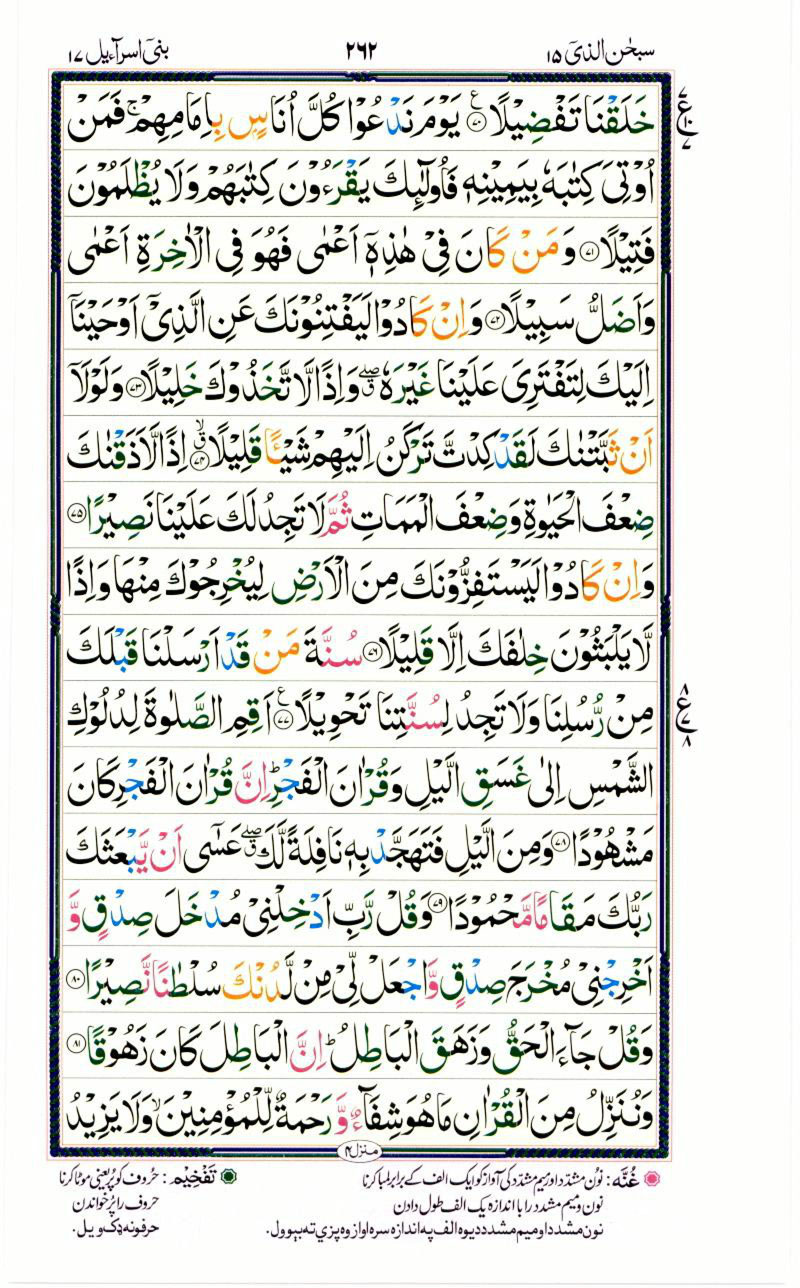 سبحٰن الذیٓ ۱۵ ۲۶۲ بنیٓ اسرآءیل ۱۷
خَلَقْنَا تَفْضِيْلًا ﴿۷۰﴾ يَوْمَ نَدْعُوْا كُلَّ اُنَاسٍۭ بِاِمَامِهِمْ ۚ فَمَنْ
اُوْتِيَ كِتٰبَهٗ بِيَمِيْنِهٖ فَاُولٰٓئِكَ يَقْرَءُوْنَ كِتٰبَهُمْ وَلَا يُظْلَمُوْنَ
فَتِيْلًا ﴿۷۱﴾ وَمَنْ كَانَ فِيْ هٰذِهٖٓ اَعْمٰى فَهُوَ فِي الْاٰخِرَةِ اَعْمٰى
وَاَضَلُّ سَبِيْلًا ﴿۷۲﴾ وَاِنْ كَادُوْا لَيَفْتِنُوْنَكَ عَنِ الَّذِيْٓ اَوْحَيْنَآ
اِلَيْكَ لِتَفْتَرِيَ عَلَيْنَا غَيْرَهٗ ۖق وَاِذًا لَّاتَّخَذُوْكَ خَلِيْلًا ﴿۷۳﴾ وَلَوْلَآ
اَنْ ثَبَّتْنٰكَ لَقَدْ كِدْتَّ تَرْكَنُ اِلَيْهِمْ شَيْـًٔا قَلِيْلًا ۙق ﴿۷۴﴾ اِذًا لَّاَذَقْنٰكَ
ضِعْفَ الْحَيٰوةِ وَضِعْفَ الْمَمَاتِ ثُمَّ لَا تَجِدُ لَكَ عَلَيْنَا نَصِيْرًا ﴿۷۵﴾
وَاِنْ كَادُوْا لَيَسْتَفِزُّوْنَكَ مِنَ الْاَرْضِ لِيُخْرِجُوْكَ مِنْهَا وَاِذًا
لَّا يَلْبَثُوْنَ خِلٰفَكَ اِلَّا قَلِيْلًا ﴿۷۶﴾ سُنَّةَ مَنْ قَدْ اَرْسَلْنَا قَبْلَكَ
مِنْ رُّسُلِنَا وَلَا تَجِدُ لِسُنَّتِنَا تَحْوِيْلًا ﴿۷۷﴾ اَقِمِ الصَّلٰوةَ لِدُلُوْكِ
الشَّمْسِ اِلٰى غَسَقِ الَّيْلِ وَقُرْاٰنَ الْفَجْرِ ؕ اِنَّ قُرْاٰنَ الْفَجْرِ كَانَ
مَشْهُوْدًا ﴿۷۸﴾ وَمِنَ الَّيْلِ فَتَهَجَّدْ بِهٖ نَافِلَةً لَّكَ ۖق عَسٰٓى اَنْ يَّبْعَثَكَ
رَبُّكَ مَقَامًا مَّحْمُوْدًا ﴿۷۹﴾ وَقُلْ رَّبِّ اَدْخِلْنِيْ مُدْخَلَ صِدْقٍ وَّ
اَخْرِجْنِيْ مُخْرَجَ صِدْقٍ وَّاجْعَلْ لِّيْ مِنْ لَّدُنْكَ سُلْطٰنًا نَّصِيْرًا ﴿۸۰﴾
وَقُلْ جَآءَ الْحَقُّ وَزَهَقَ الْبَاطِلُ ؕ اِنَّ الْبَاطِلَ كَانَ زَهُوْقًا ﴿۸۱﴾
وَنُنَزِّلُ مِنَ الْقُرْاٰنِ مَا هُوَ شِفَآءٌ وَّرَحْمَةٌ لِّلْمُؤْمِنِيْنَ ۙ وَلَا يَزِيْدُ
منزل ۴
غُنَّه: نُون مشدّد اور میم مشدّد کی آواز کو ایک الف کے برابر لمبا کرنا تَفْخِیْم: حُروف کو پُر یعنی موٹا کرنا
نون و میم مشدد را با اندازہ یک الف طول دادن حروف را پُر خواندن
نون مشدد او میم مشدد دیوہ الف په اندازہ سرہ اواز وہ پزي ته بېوول. حرفونه ډک ویل.